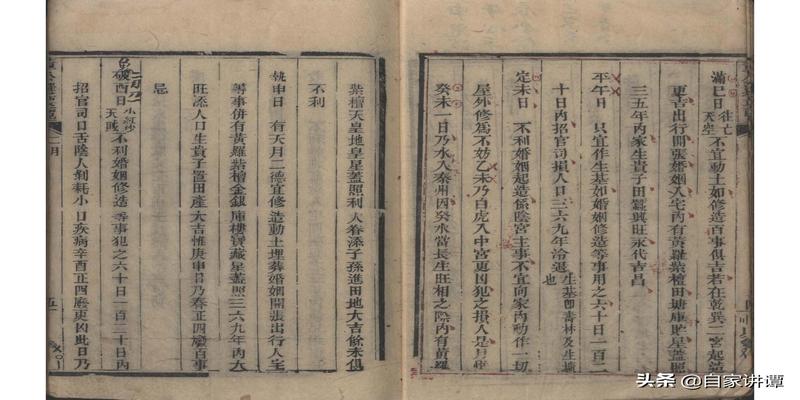 滿巳日 往亡 天空 不宜動土如修造百事俱吉若在乾巽二宮起造
更吉出行開張婚姻入宅內有黃羅紫檀田塘庫貯星蓋照
三五年內家生貴子田蠶興旺永代吉昌
平午日 只宜作生基如婚姻修造等事用之六十日一百二
十日內招官司損人口三六九年冷退 生基即壽林及生墳也
定未日 不利婚姻起造係陰宮主事不宜向家內動作一切
屋外修為不妨乙未乃白虎入中宮更凶犯之損人是月
癸未一日乃水入秦州因癸水當長生旺相之際內有黃羅
紫檀天皇地皇星蓋照利人眷添子孫進田地大吉餘未俱
不利
執申日 有天月二德宜修造動土埋葬婚姻開張出行入宅
等事併有黃羅紫檀金銀庫樓寶藏星蓋照三六九年內大
旺添人口生貴子置田產大吉惟庚申日乃春正四廢百事
忌
破酉日 小紅沙 天賊 不利婚姻修造等事犯之六十日一百二十日內
招官司口舌陰人剝耗小口疾病辛酉正四廢更凶此日乃
二月
頭条 @自家讲谭